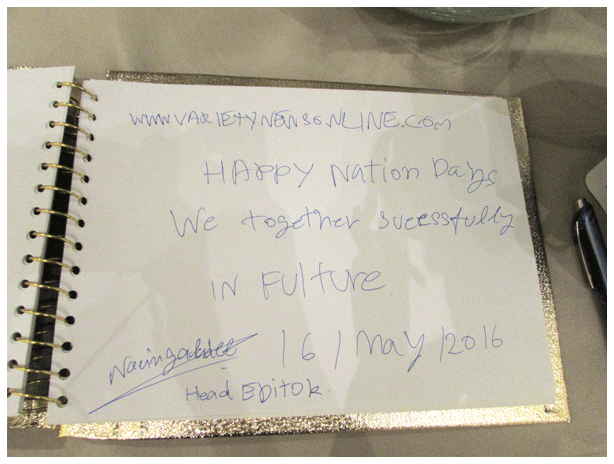 www.VARIETYNEWSONLINE.COM
HAppy Nation Days
We together sucessfully
IN FuLture.
16 / May / 2016
Head EDitor.